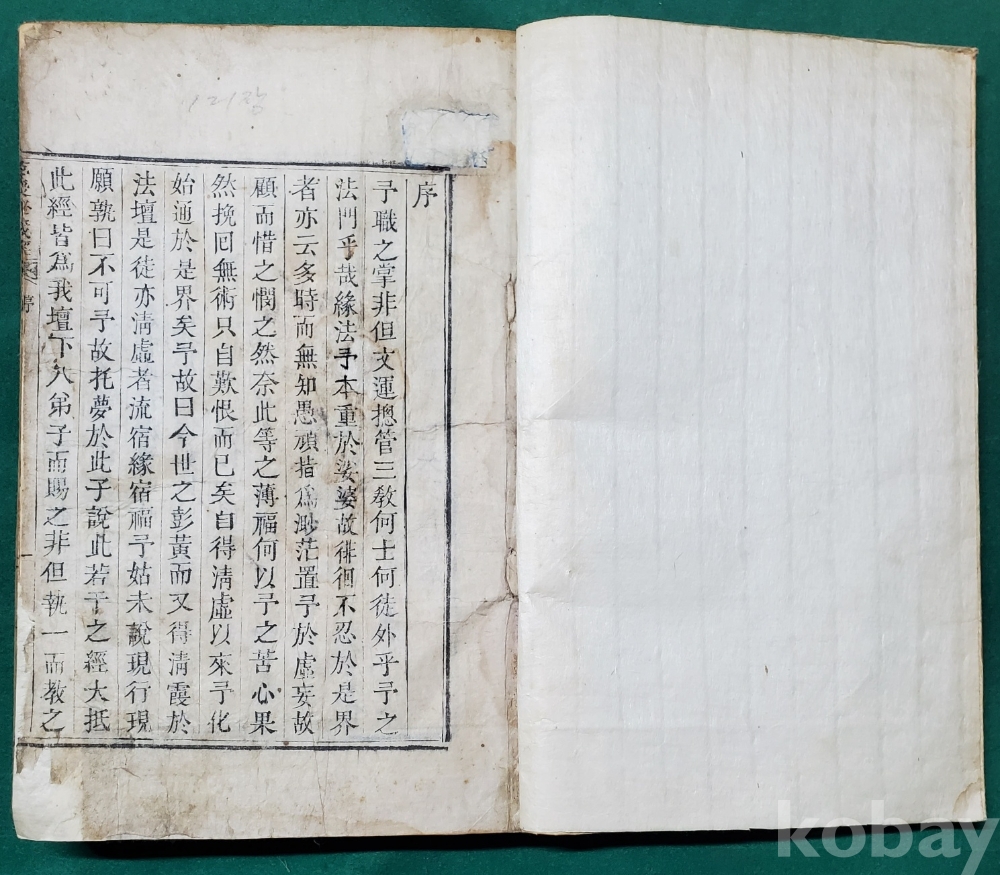 121장
序
予職之掌非但文運摠管三敎何士何徒外乎予之
法門乎哉緣法予本重於娑婆故徘徊不忍於是界
者亦云多時而無知愚頑指爲渺茫置予於虛妄故
顧而惜之憫之然奈此等之薄福何以予之苦心果
然挽回無術只自歎恨而已矣自得淸虛以來予化
始通於是界矣予故曰今世之彭黃而又得淸霞於
法壇是徒亦淸虛者流宿緣宿福予姑未說現行現
願孰曰不可予故托夢於此子說此若干之經大抵
此經皆爲我壇下八弟子而賜之非但執一而敎之
序
一
kobay